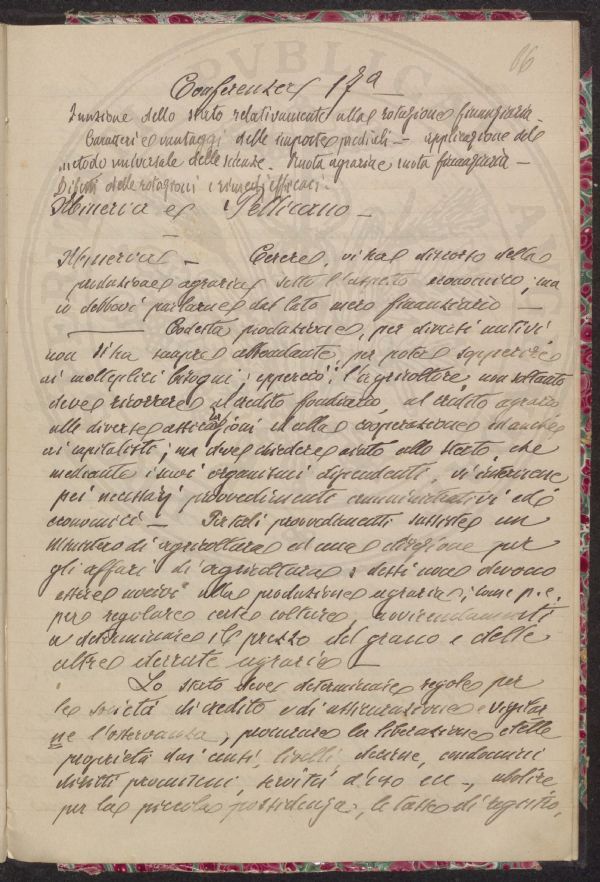 66
Conferenza 17ª
Funzione dello stato relativamente alla rotazione finanziaria —
Caratteri e vantaggi delle imposte prediali — applicazione del
metodo universale delle scienze. Ruota agraria e ruota finanziaria —
Difetti delle rotazioni e rimedj efficaci.
Minerva e Pellicano —
Minerva — Cerere, vi ha discorso della
produzione agraria sotto l'aspetto economico; ma
io debbovi parlarne dal lato mero finanziario —
Codesta produzione, per diversi motivi
non si ha sempre abbondante, per poter sopperire
ai molteplici bisogni; epperciò l'agricoltore, non soltanto
deve ricorrere al credito fondiario, al credito agrario
alle diverse associazioni ed alla cooperazione ed anche
ai capitalisti; ma deve chiedere aiuto allo stato, che
mediante i suoi organismi dipendenti, vi interviene
pei necessarj provvedimenti amministrativi ed
economici — Per tali provvedimenti sussiste un
Ministero di agricoltura ed una direzione per
gli affari di agricoltura; dessi non devono
essere nocivi alla produzione agraria; come p.e.
per regolare certe colture, avvicendamenti
a determinare il prezzo del grano e delle
altre derrate agrarie —
Lo stato deve determinare regole per
le società di credito e di assicurazione e vigilar
ne l'osservanza, procurare la liberazione delle
proprietà dai censi, livelli, decime, condominii
diritti promiscui, servitù d'uso ec —, abolire
per la piccola possidenza, le tasse di registro,